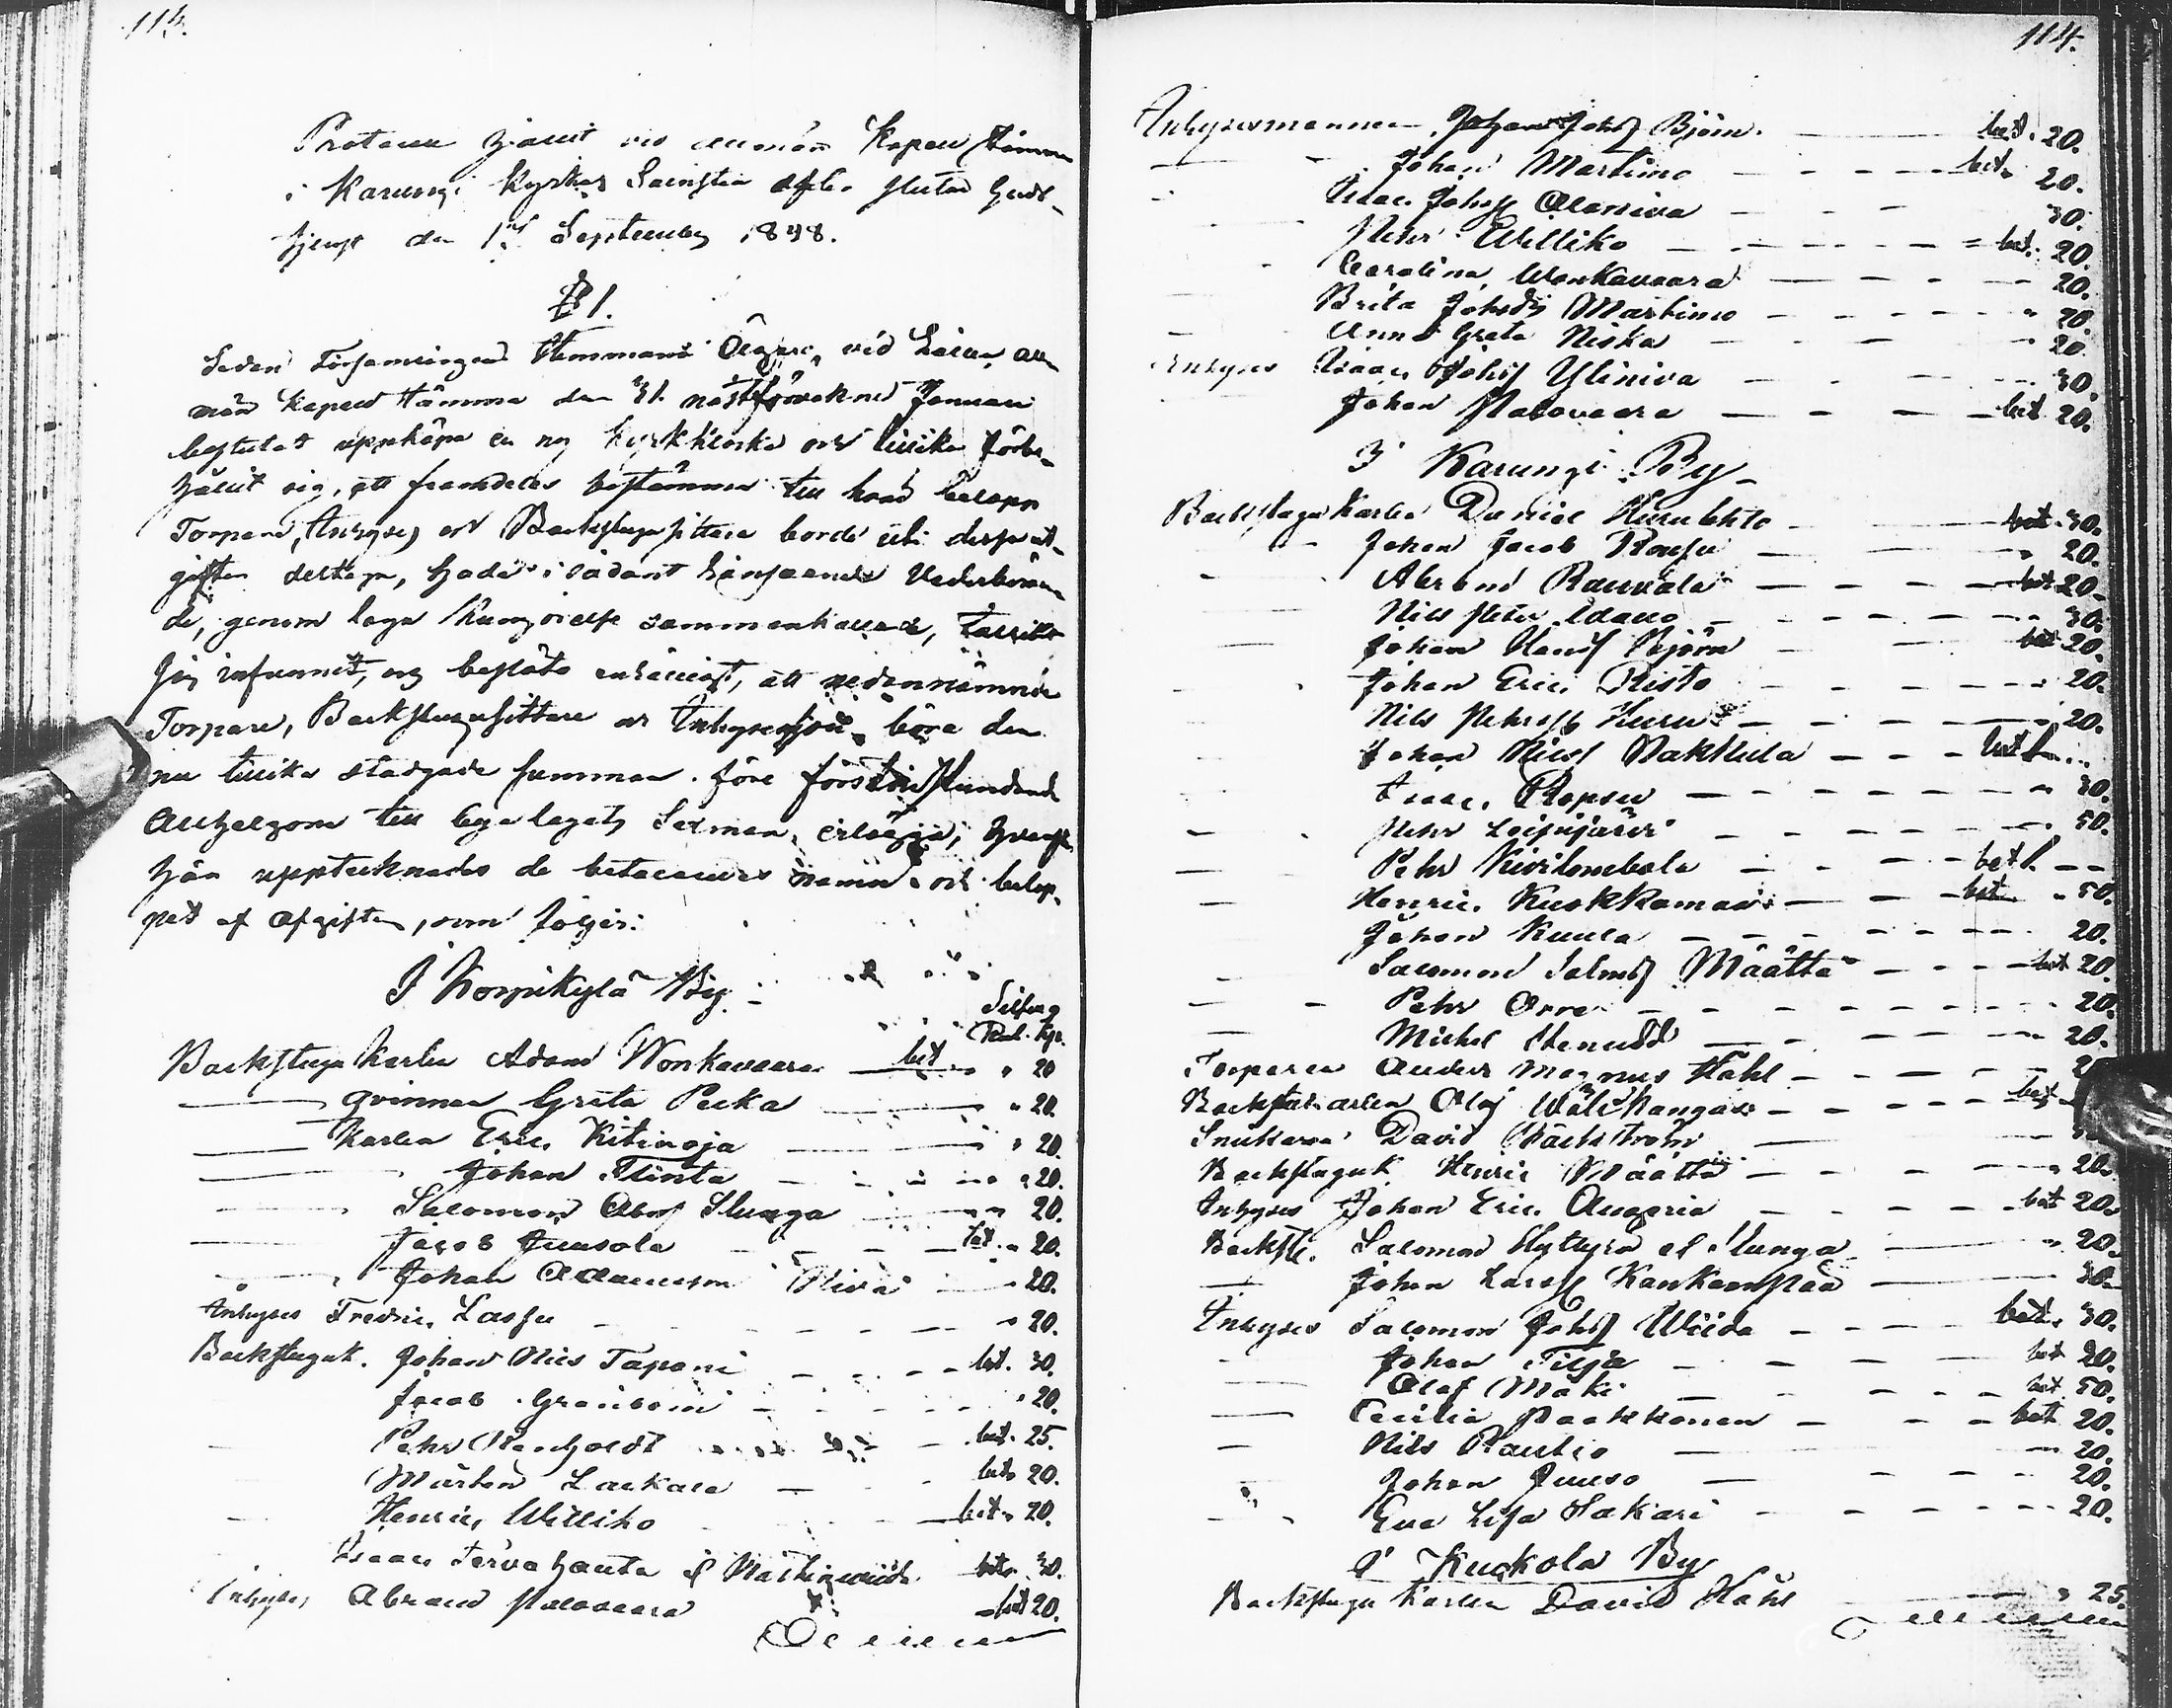 113.
Protocoll hållit vid allmän Kyrkostämma
i Karungi Kyrkas Sacristia efter slutad Gudstjenst
den 1 September 1848.
§ 1.
Sedan Församlingens Hemmans Ägare, vid Laga all-
män Kyrkostämma den 31. nästförvekne Januari
beslutat uppköpa en ny Kyrkklocka och tillika förbe-
hållit sig, att framdeles bestämma till hvad belopp
Torpare, Inhyses och Backstugusittare borde uti dess ut-
gifter deltaga, hade i sådant hänseende Vederböran-
de, genom laga Kungörelse sammankallade, talrikt
sig infunnit, och beslöto enhälligt, att nedannämnde
Torpare, Backstugusittare och Inhyseshjon böra den
nu tillika stadgade summan före förstkommande
Allhelgona till erlägga,
här upptecknades de betalandes namn och belop-
pet af afgiften, som följer:
I Korpikylä By.
Silfver
Rub. Kp.
Backstugu Karlen Adam Wonkavaara bet " 20
qvinnan Greta Pecka " 20.
Karlen Eric Kitinoja " 20.
Johan Flinta " 20.
Salomon Abrss Slunga " 20.
Jacob Juusola bet. " 20.
Johan Adamsson Niva " 20.
Inhyses Fredric Lassu " 20.
Backstuguk. Johan Nils Tapani bet. 30.
Jacob " 20.
Pehr Renholdt bet. 25.
Mårten Laukala bet. 20.
Henric Williko bet. 20.
Isaac Tervahauta bet. 30.
Inhyses Abram Palovaara bet 20.
114.
Inhysesmannen Johan Johss Björn. bet. 20.
Johan Martimo bet. 20.
Isaac Johss Alaniva 30.
Pehr Williko bet. 20.
Carolina Wonkavaara 20.
Brita Johsdr Martimo " 20.
Anna Greta Niska 20.
Inhyses Isaac Johss Yliniva 30.
Johan Palovaara bet. 20.
I Karungi By
Backstugu Karlen Daniel Hurulehto bet. 30.
Johan Jacob Roufu " 20.
Abram Rauvala bet. 20.
Nils Petter Adamo 30.
Johan Björn bet 20.
Johan Eric Risto 20.
Nils Pehrss Huru 20.
Johan Nilss Pakkula bet
Isaac Ropsu 30.
Pehr Leipijärvi 50.
Pehr bet
Henric Kuokkamaa bet. " 50.
Johan Kuula 20.
Salomon Salmss Määttä bet 20.
Pehr Orre 20.
Michel Stenudd 20.
Torparen Anders Magnus Ståhl
Backstukarlen Olof Wälikangas bet
Snickaren David Bäckström
Backstuguk. Henric Määttä 20.
Inhyses Johan Eric Augeria bet 20.
Backstk. Salomon el. Slunga " 20.
Johan Larss Kankaanpää 30.
Inhyses Salomon Johss Wiida bet. 30.
Johan Tilja bet 20.
Olof Mäki bet. 50.
Cecilia Paakkonen bet 20.
Nils Rautio 20.
Johan Juuso 20.
Eva Lisa Sakari 20.
I Kuckola By
Backstugu Karlen David Ståhl " 25.